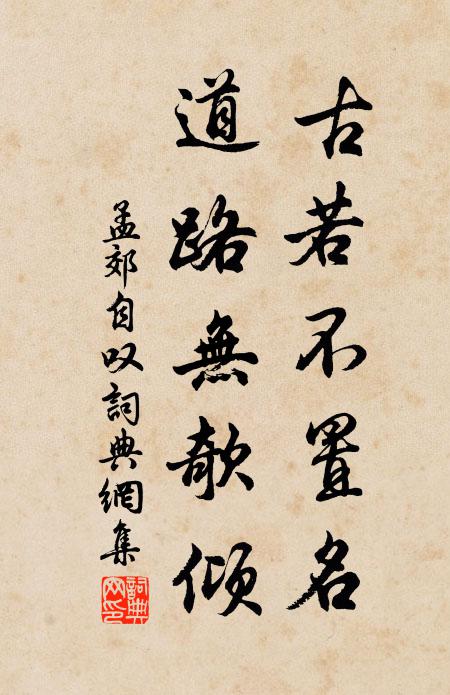 古若不置名
道路無欹傾
孟郊自叹詞典網集
詞典网印